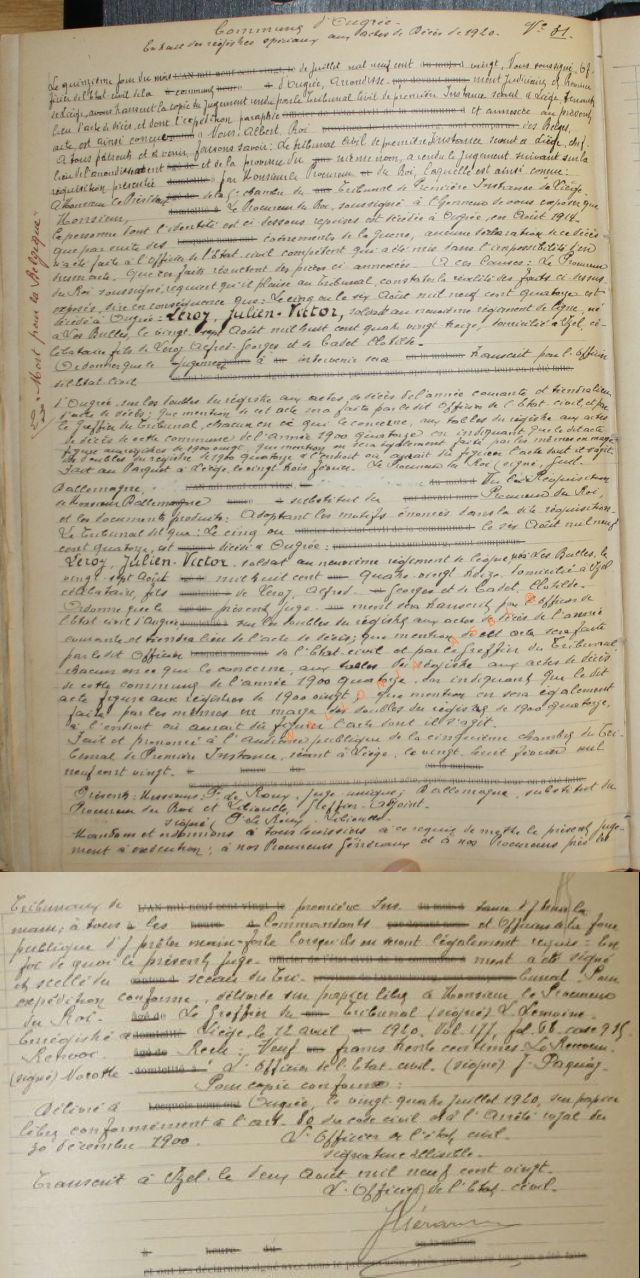 Commune d'Ougrée.
Extrait des registres spéciaux aux actes de Décès de 1920. N° 31.
Le quinzième jour du mois L'AN mil neuf cent vingt, le de juillet mil neuf cent vingt, Nous soussigné, Of-
ficier de l'Etat civil de la commune d'Ougrée, Arrondisse- ment Judiciaire, et Province
de Liège, avons transcrit la copie du Jugement rendu par le Tribunal Civil de première Instance séant à Liège, tenant
lieu d'acte de décès, et dont l'expédition paraphée et annexée au présent
acte est ainsi conçue : Nous : Albert, Roi des Belges,
A tous présents et à venir, faisons savoir : Le tribunal civil de première Instance séant à Liège, chef-
lieu de l'arrondissement et de la province du même nom, a rendu le Jugement suivant sur la
réquisition présentée par Monsieur le Procureur du Roi, laquelle est ainsi conçue :
A Monsieur le Président de la chambre du tribunal de Première Instance de Liège,
Monsieur, Le Procureur du Roi, soussigné a l'honneur de vous exposer que
la personne dont l'identité est ci-dessous reprise est décédée à Ougrée, en Août 1914.
que par suite des événements de la guerre, aucune déclaration de ce décès
n'a été faite à l'Officier de l'Etat civil compétent qui a été mis dans l'impossibilité d'en
dresser acte. Que ces faits résultent des pièces ci-annexées. A ces Causes : Le Procureur
du Roi soussigné, requiert qu'il plaise au tribunal, constater la réalité des faits ci-dessus
exposés, dire en conséquence que : Le cinq ou le six Août mil neuf cent quatorze est
décédé à Ougrée : Leroy, Julien-Victor, soldat au neuvième régiment de ligne, né
à Les Bulles, le vingt-sept Août mil huit cent quatre vingt treize, domicilié à Izel, cé-
libataire fils de Leroy Alfred-Georges et de Cadet Clotilde.
Ordonner que le Jugement à intervenir sera transcrit par l'officier
de l'Etat civil
"Mort pour la Belgique"
d'Ougrée, sur les doubles du registre aux actes de décès de l'année courante et tiendra lieu
d'acte de décès ; que mention de cet acte sera faite par le dit Officier de l'Etat civil, et par
le Greffier du tribunal, chacun en ce qui le concerne, aux tables du registre aux actes
de décès de cette commune de l'année 1900 quatorze en indiquant que le dit acte
figure aux registres de 1900 vingt, que mention en sera également faite par les mêmes en marge
des doubles du registre de 1900 quatorze à l'endroit où aurait dû figurer l'acte dont il s'agit.
Fait au Parquet à Liège, le vingt trois février. Le Procureur du Roi (signé)
Dallemagne, Vu la Réquisition
de Monsieur Dallemagne substitut du Procureur du Roi,
et les documents produits : Adoptant les motifs énoncés dans la dite réquisition.
Le Tribunal dit que : Le cinq ou le six Août mil neuf
cent quatorze, est décédé à Ougrée :
Leroy, Julien-Victor, soldat au neuvième régiment de ligne, né à Les Bulles, le
vingt-sept Août mil huit cent quatre-vingt treize, domicilié à Izel
célibataire, fils de Leroy, Alfred-Georges et de Cadet, Clotilde.
Ordonne que le présent juge- ment sera transcrit par l'officier de
l'Etat civil d'Ougrée sur les doubles du registre aux actes de décès de l'année
courante et tiendra lieu de l'acte de décès ; que mention de cet acte sera faite
par le dit Officier de l'Etat civil et par le Greffier du Tribunal
chacun en ce qui le concerne, aux tables du registre aux actes de décès
de cette commune de l'année 1900 quatorze en indiquant que le dit
acte figure aux registres de 1900 vingt, que mention en sera également
faite par les mêmes en marge des doubles du registre de 1900 quatorze,
à l'endroit où aurait dû figurer l'acte dont il s'agit.
Fait et prononcé à l'audience publique de la cinquième chambre du Tri-
bunal de Première Instance, séant à Liège, le vingt huit février mil
neuf cent vingt.
Présents : Messieurs, de Roux, juge-unique ; Dallemagne, substitut du
Procureur du Roi et Greffier-Adjoint.
signé
Mandons et ordonnons à tous huissiers à ce requis de mettre le présent juge-
ment à exécution ; à nos Procureurs Généraux et à nos Procureurs près les
Tribunaux de L'AN mil neuf cent vingt, le première Ins- tance d'y tenir la
main ; à tous les Commandants et Officiers de la force
publique d'y prêter main-forte lorsqu'ils en seront légalement requis. En
foi de quoi le présent juge- officier de l'état civil ment a été signé
et scellé du sceau du Tri- bunal. Pour
expédition conforme, délivrée sur papier libre à Monsieur le Procureur
du Roi. Le Greffier du Tribunal (signé) L. Lemoine.
Enregistré à Liège, le 12 avril 1920, Vol. 177, fol. 68, case 9
Renvoi Reçu : Neuf francs trente centimes. Le Receveur
(signé) L'Officier de l'Etat civil. (signé) J. Paquay.
Pour copie conforme :
Délivré à Ougrée, le vingt quatre juillet 1920, sur papier
libre conformément à l'art. 80 du code civil et à l'Arrêté royal du
30 décembre 1900. L'Officier de l'état civil.
signature illisible.
Transcrit à Izel, le deux Août mil neuf cent vingt.
L'Officier de l'Etat civil.
heure du en la maison
et ont les déclarants signé avec nous le présent acte, après que lecture leur en a été faite